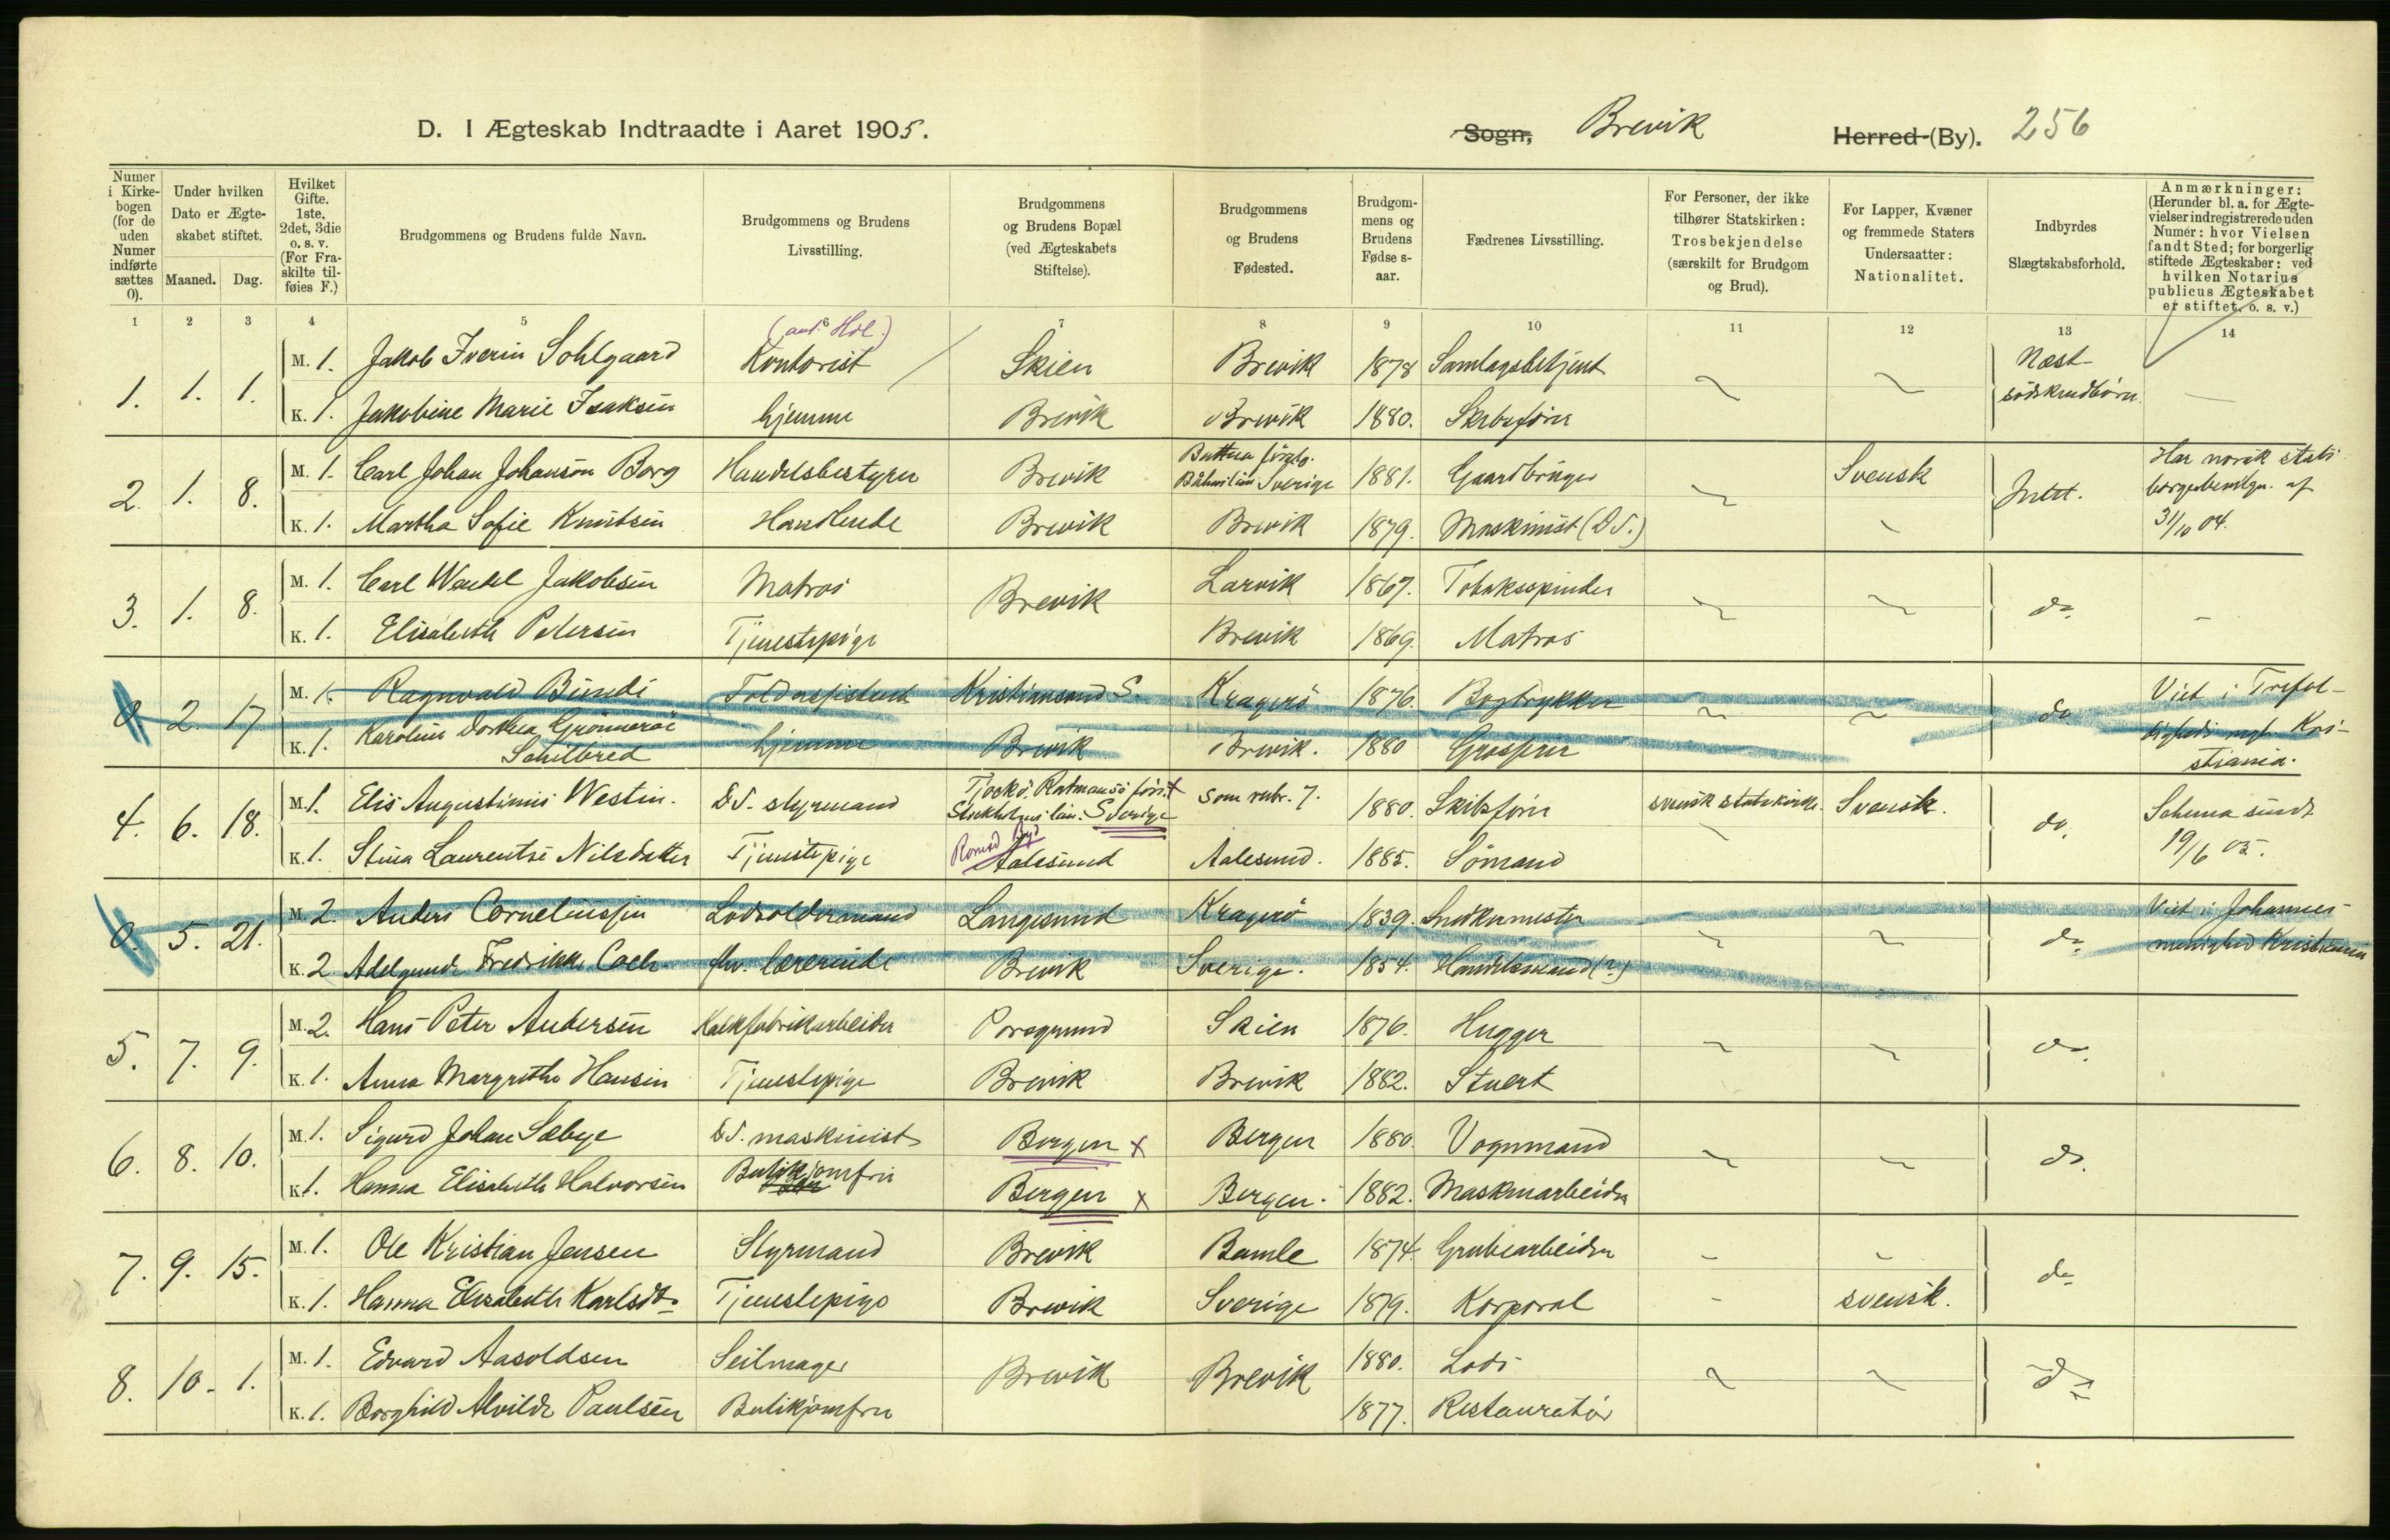 D. I Ægteskab Indtraadte i Aaret 1905.
Sogn, Brevik Herred (By). 256
Numer i Kirkebogen (for de uden Numer indførte sættes 0).
Under hvilken Dato er Ægteskabet stiftet.
Maaned. Dag.
Hvilket Gifte. 1ste, 2det, 3die o. s. v. (For Fraskilte tilføies F.)
Brudgommens og Brudens fulde Navn.
Brudgommens og Brudens Livsstilling.
Brudgommens og Brudens Bopæl (ved Ægteskabets Stiftelse).
Brudgommens og Brudens Fødested.
Brudgommens og Brudens Fødselsaar.
Fædrenes Livsstilling.
For Personer, der ikke tilhører Statskirken: Trosbekjendelse (særskilt for Brudgom og Brud).
For Lapper, Kvæner og fremmede Staters Undersaatter: Nationalitet.
Indbyrdes Slægtskabsforhold.
Anmærkninger: (Herunder bl. a. for Ægtevielser indregistrerede uden Numer: hvor Vielsen fandt Sted; for borgerlig stiftede Ægteskaber: ved hvilken Notarius publicus Ægteskabet er stiftet, o. s. v.)
1 2 3 4 5 6 7 8 9 10 11 12 13 14
1. 1. 1. M. 1. Jakob Iverin Sohlgaard Kontorist Skien Brevik 1878 Samlagsbetjent Næst-
K. 1. Jakobine Marie Isaksen hjemme Brevik Brevik 1880. Skibsfører södskendbörn
2. 1. 8. M. 1. Carl Johan Johanson Borg Handelsbestyrer Brevik Sverige 1881. Gaardbruger Svensk Intet. Har norsk stats
borgerbevilgn. af
K. 1. Martha Sofie Knutsen Handlende Brevik Brevik 1879. Maskinist (DS.) 31/10 04.
3. 1. 8. M. 1. Carl Wendel Jakobsen Matros Brevik Larvik 1867. Tobaksspinder do.
K. 1. Elisabeth Petersen Tjenestepige Brevik 1869. Matros
0 2. 17 M. 1. Ragnvald Bundi Toldassistent Kristiansand S. Kragerö 1876. Bogtrykker do Viet i Trefol-
K. 1. Karoline Dorthea Grönneröe
Schilbred hjemme Brevik Brevik. 1880 Grosserer stiania.
4. 6. 18. M. 1. Elis Augustinus Westin. DS. styrmand Tjockö, Ratmansö förs.
Stockholms län. Sverige som rubr. 7. 1880. Skibsfører svensk statskirke. Svensk. do. Schema sendt
K. 1. Stina Laurentse Nilsdatter Tjenestepige Aalesund Aalesund. 1885. Sömand 19/6 05.
0. 5. 21. M. 2 Anders Corneliussen Lodsoldermand Langesund Kragerö 1839. Snedkermester do Viet i Johannes
K. 2 Adelgunde Fredrikke fhv. lærerinde Brevik Sverige. 1854. Handelsmand (?) menighed Kristiania
5. 7. 9. M. 2. Hans Peter Andersen Kalkfabrikarbeider Porsgrund Skien 1876. Hugger do.
K. 1. Anna Margrethe Hansen Tjenestepige Brevik Brevik 1882. Stuert
6. 8. 10. M. 1. Sigurd Johan Sæbye DS. maskinist Bergen x Bergen 1880. Vognmand do.
K. 1. Hanna Elisabeth Halvorsen Butikjomfru Bergen x Bergen. 1882. Maskinarbeider
7. 9. 15. M. 1. Ole Kristian Jensen Styrmand Brevik Bamle 1874. Grubearbeider do
K. 1. Hanna Elisabeth Karlsdtr. Tjenestepige Brevik Sverige 1879. Korporal svensk.
8. 10. 1. M. 1. Edvard Aasoldsen Seilmager Brevik Brevik 1880. Lods do
K. 1. Borghild Alvilde Paulsen Butikjomfru 1877. Restauratör